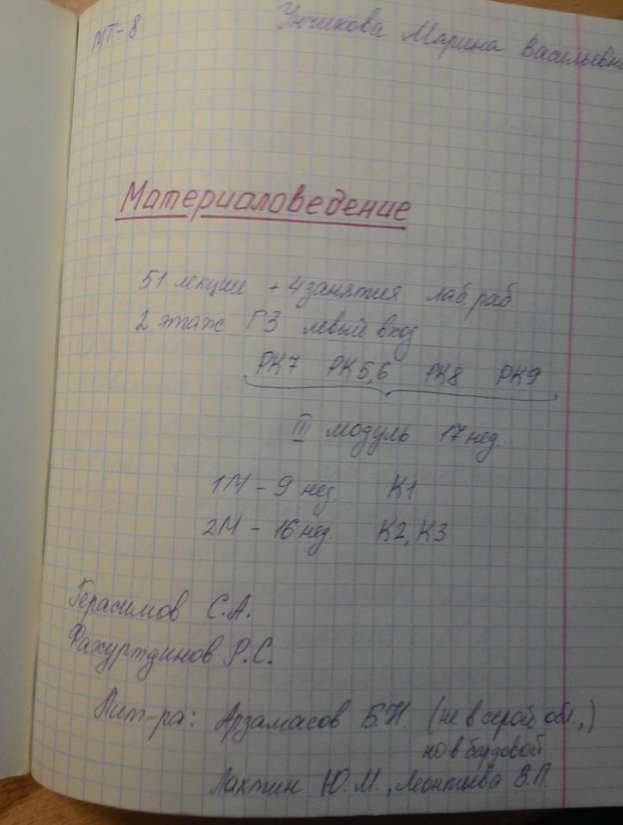 МТ-8
Унчикова Марина Васильевна
Материаловедение
51 лекция + 4 занятия лаб раб
2 этаж ГЗ левый вход
РК7 РК5,6 РК8 РК9
III модуль 17 нед
1М - 9 нед. К1
2М - 16 нед. К2, К3
Герасимов С.А.
Фахуртдинов Р.С.
Лит-ра: Арзамасов Б.Н. (не в серой обл.,)
но в бордовой
Лахтин Ю.М., Леонтьева В.П.